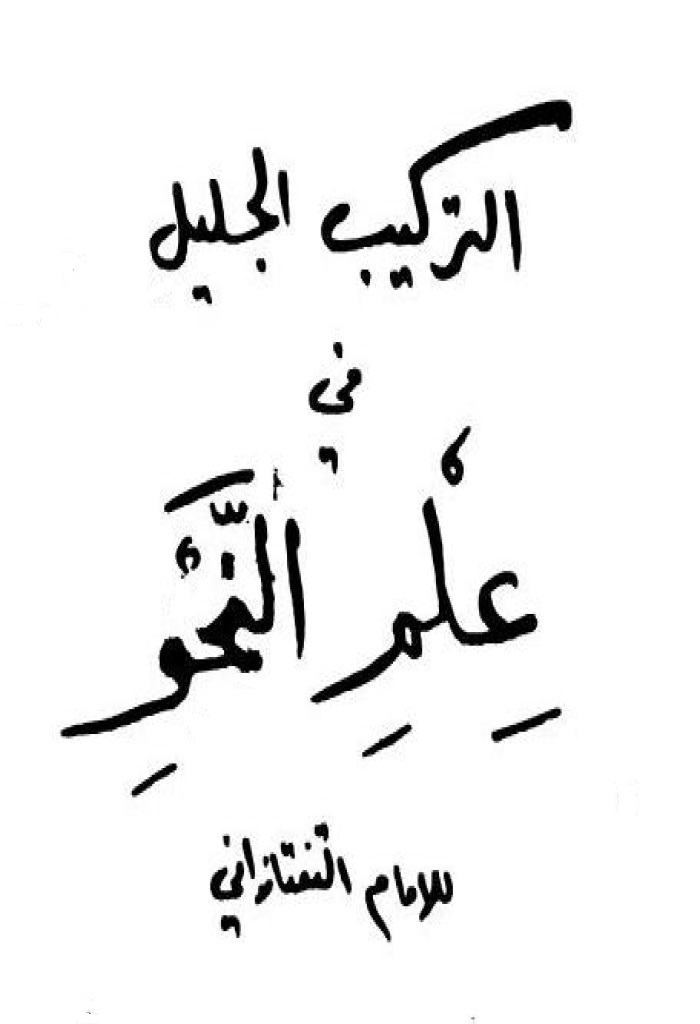 التركيب الجليل
في
عِلْمِ النَّحْوِ
للامام التفتازاني